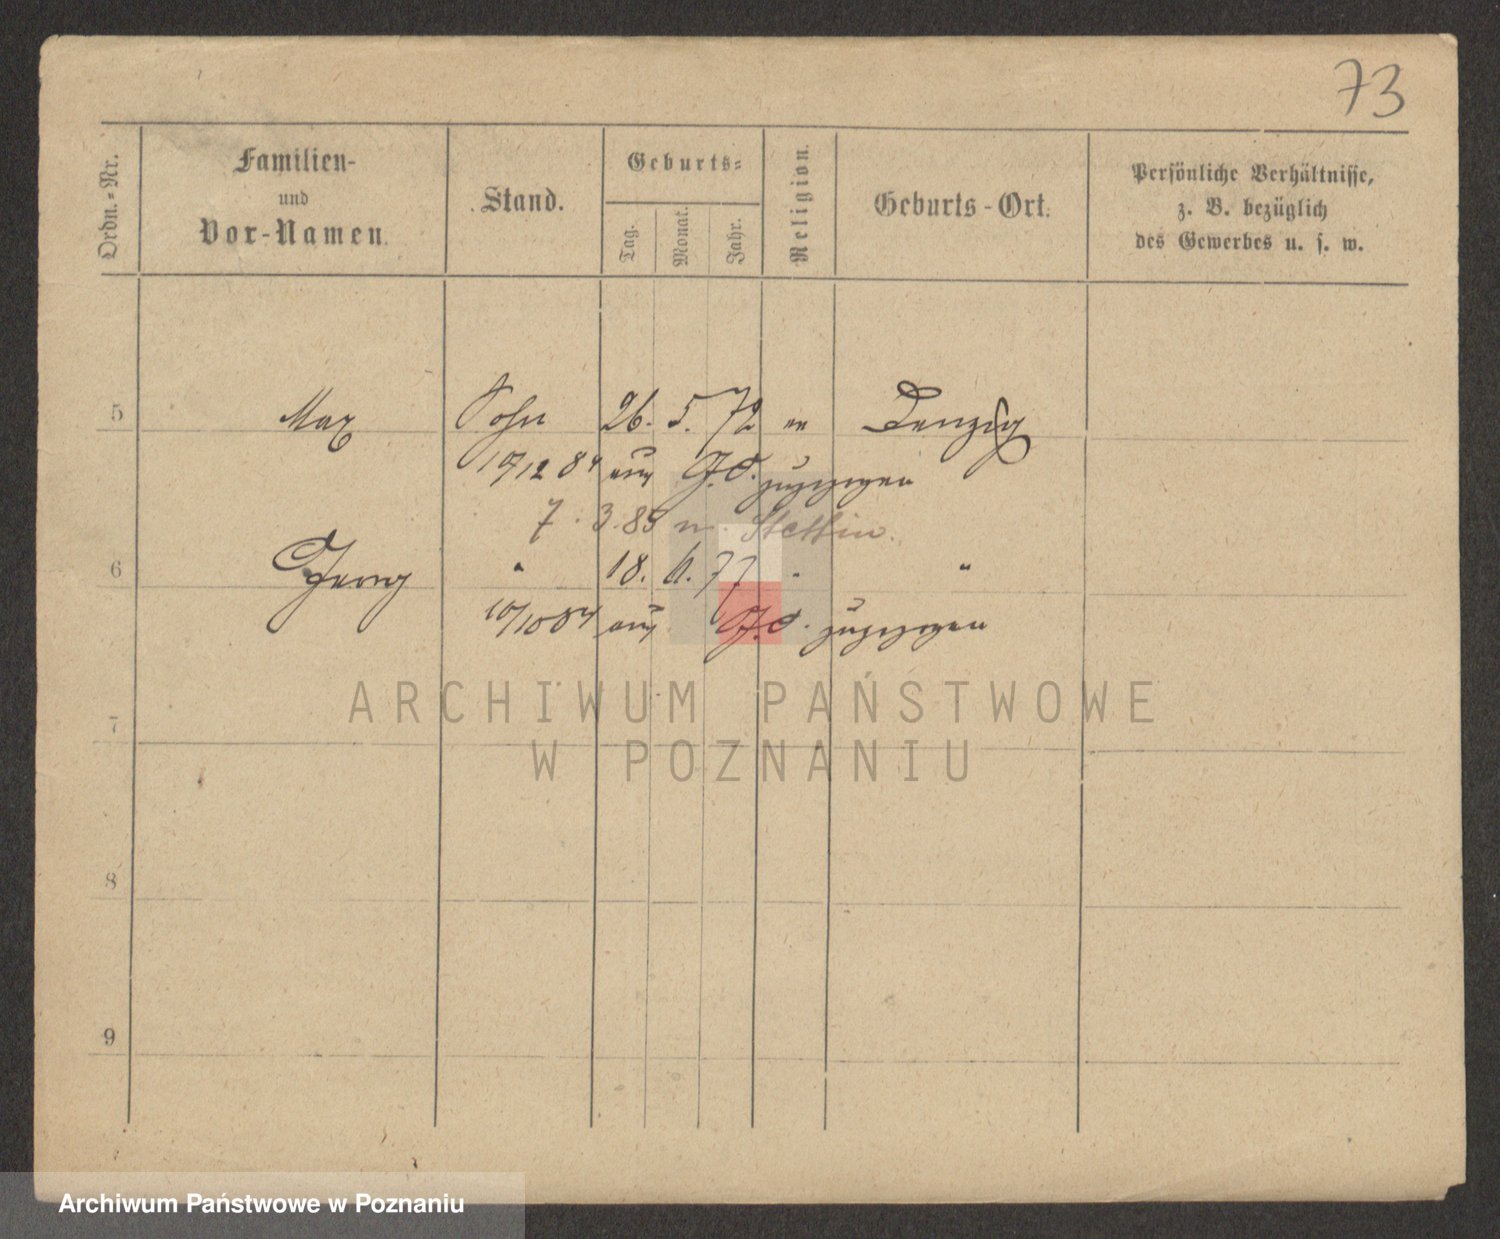 73
Ordn.-Nr.
Familien-
und
Vor-Namen.
Stand.
Geburts-
Tag.
Monat.
Jahr.
Religion.
Geburts-Ort.
Persönliche Verhältnisse,
z. B. bezüglich
des Gewerbes u. s. w.
5 Max Sohn 26. 5. 72 Danzig
12 84 aus zugezogen
7. 3. 85 n. Stettin.
6 Georg " 18. 77 " "
10/10 84 aus zugezogen
ARCHIWUM PAŃSTWOWE
7
W POZNANIU
8
9
Archiwum Państwowe w Poznaniu